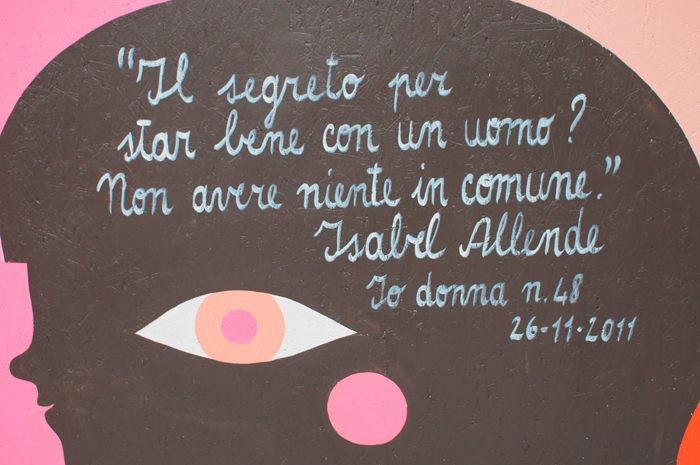 "Il segreto per
star bene con un uomo?
Non avere niente in comune."
Isabel Allende
Io donna n.48
26-11-2011